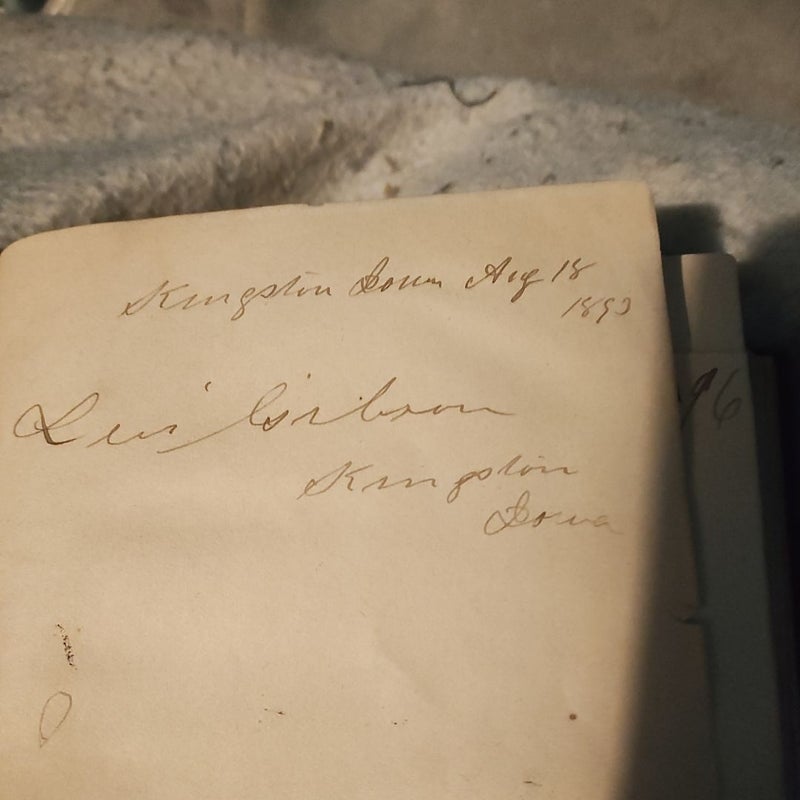 Kingston Iowa Aug 18
1893
Levi Gibson
Kingston
Iowa
96